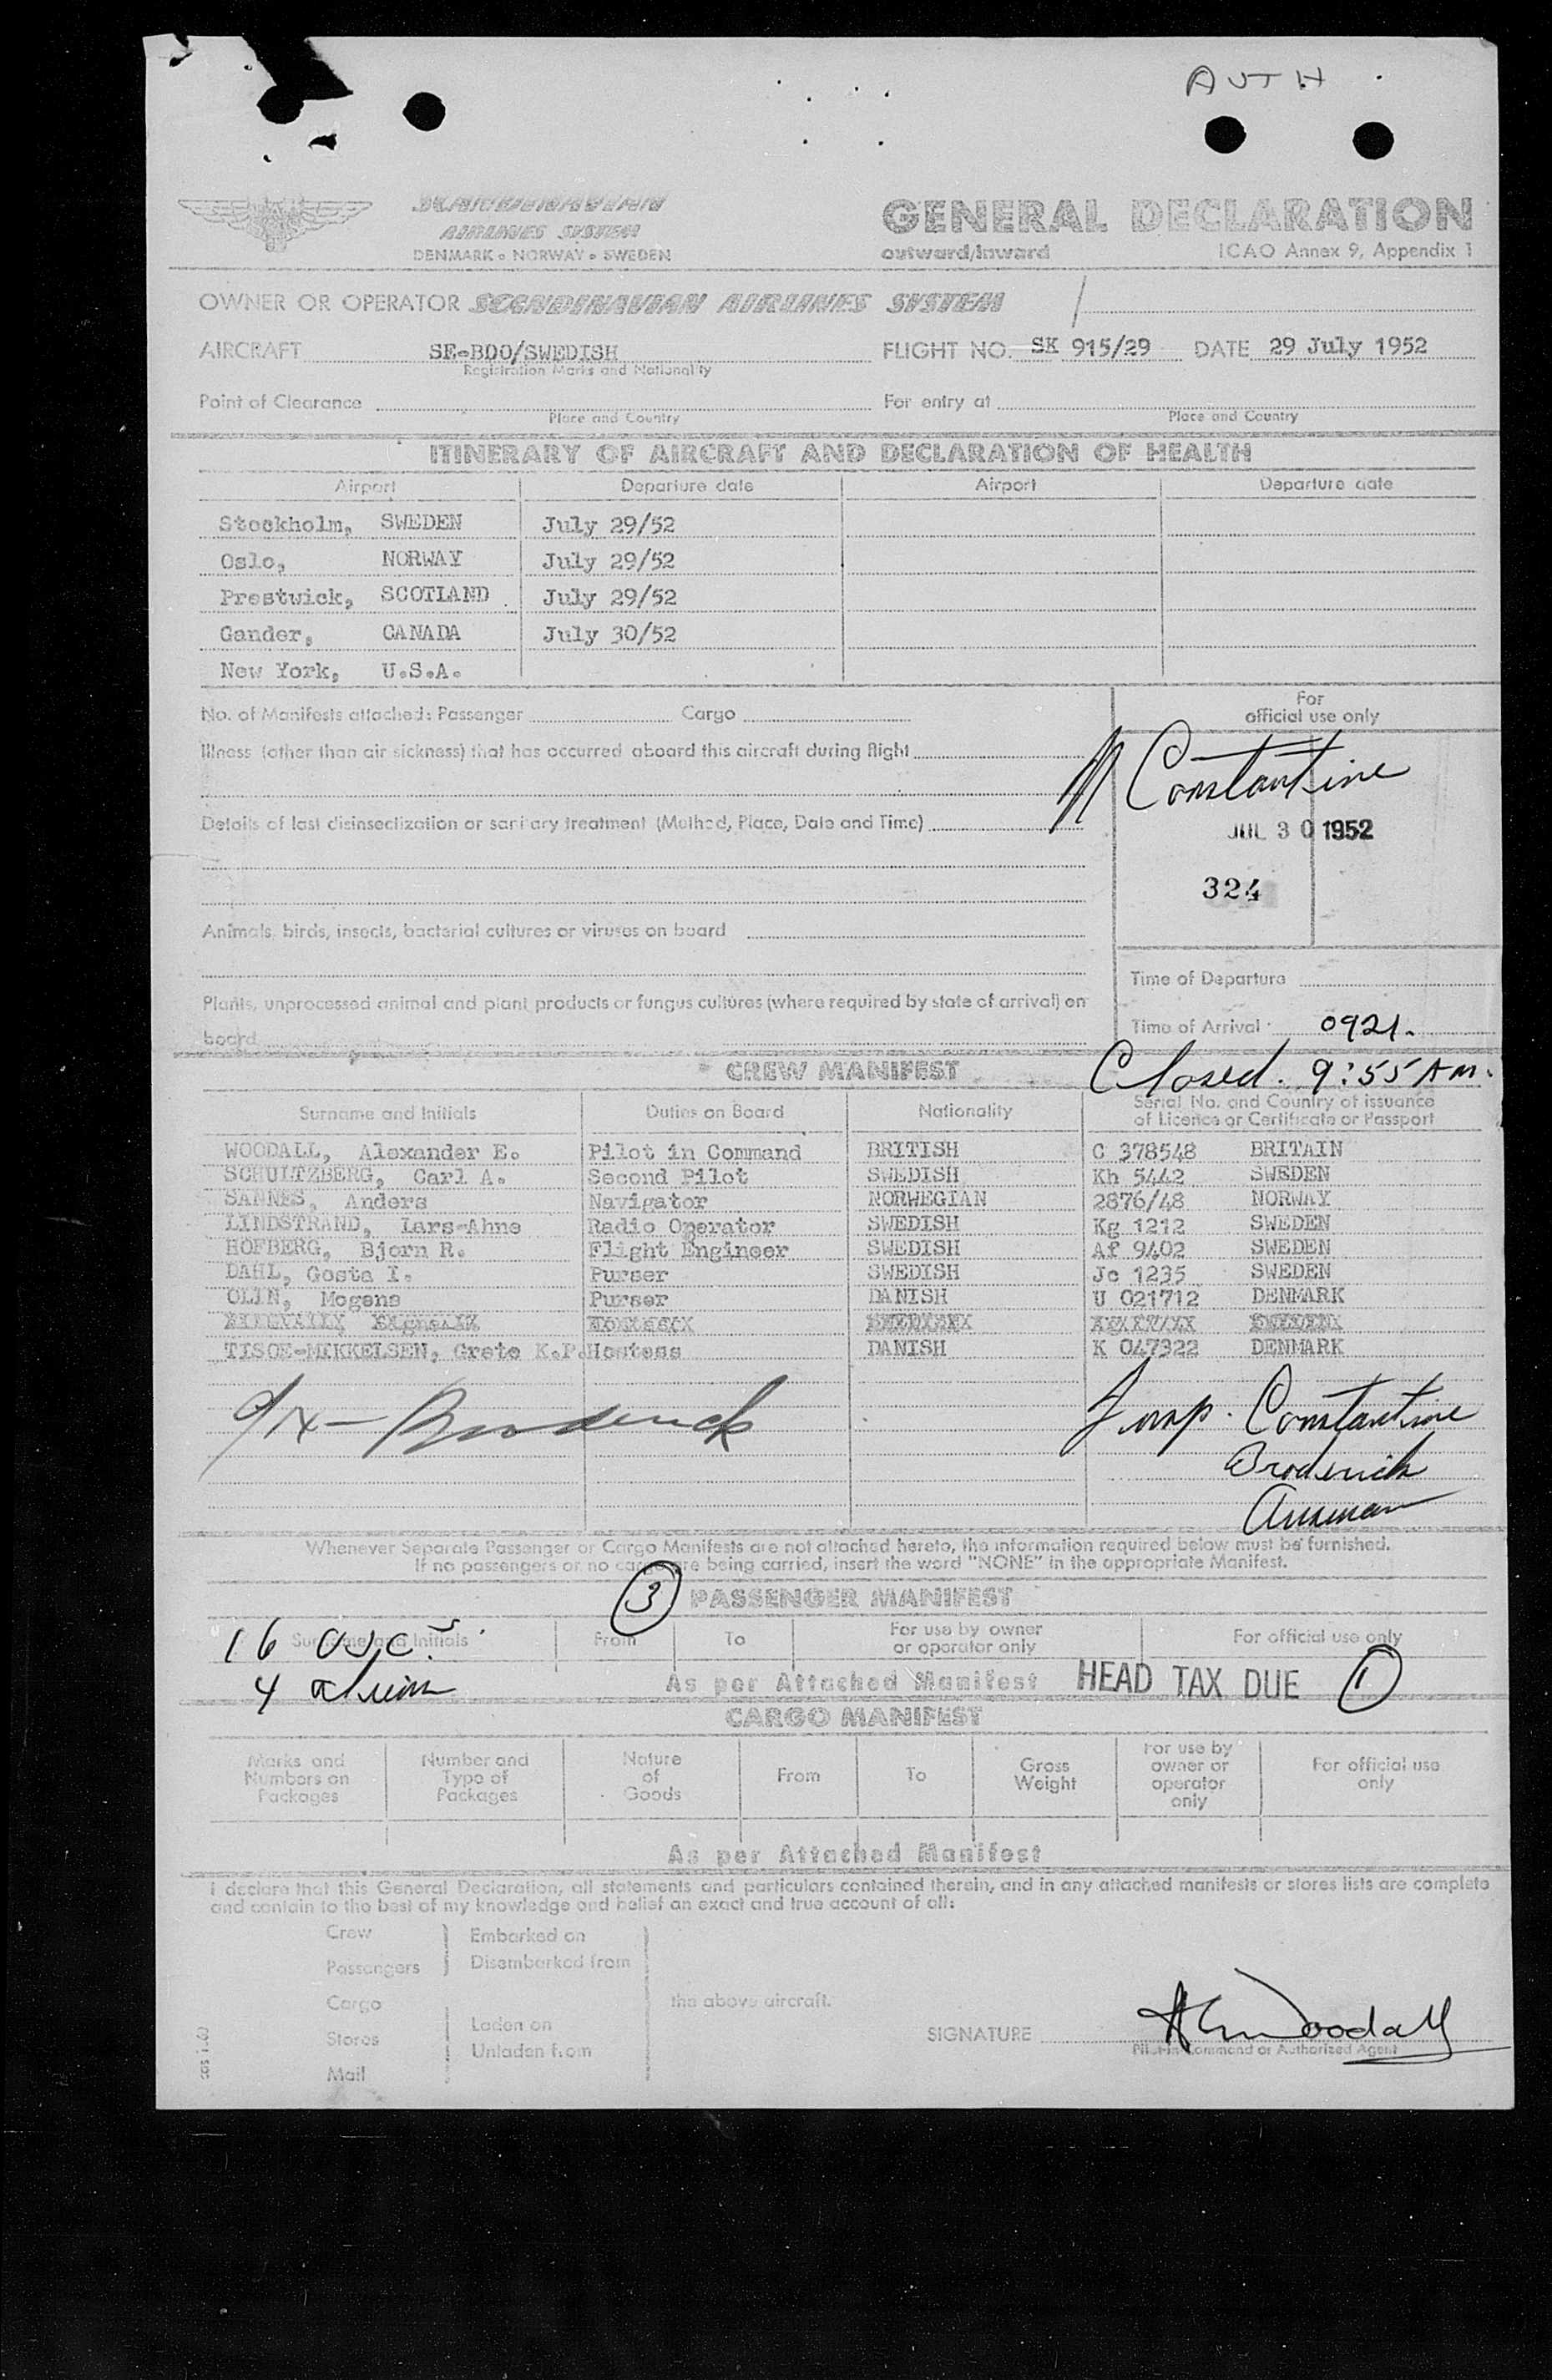 AUTH
SCANDINAVIAN
AIRLINES SYSTEM
DENMARK • NORWAY • SWEDEN
GENERAL DECLARATION
outward/inward ICAO Annex 9, Appendix 1
OWNER OR OPERATOR SCANDINAVIAN AIRLINES SYSTEM
AIRCRAFT SE-BDO/SWEDISH FLIGHT NO. SK 915/29 DATE 29 July 1952
Registration Marks and Nationality
Point of Clearance For entry at
Place and Country Place and Country
ITINERARY OF AIRCRAFT AND DECLARATION OF HEALTH
Airport Departure date Airport Departure date
Stockholm, SWEDEN July 29/52
Oslo, NORWAY July 29/52
Prestwick, SCOTLAND July 29/52
Gander, CANADA July 30/52
New York, U.S.A.
No. of Manifests attached: Passenger Cargo
For
official use only
Illness (other than air sickness) that has occurred aboard this aircraft during flight
Constantine
Details of last disinsectization or sanitary treatment (Method, Place, Date and Time)
JUL 30 1952
324
Animals, birds, insects, bacterial cultures or viruses on board
Time of Departure
Plants, unprocessed animal and plant products or fungus cultures (where required by state of arrival) on
board
Time of Arrival 0921.
CREW MANIFEST
Closed. 9:55 AM.
Surname and Initials Duties on Board Nationality Serial No. and Country of issuance
of Licence or Certificate or Passport
WOODALL, Alexander E. Pilot in Command BRITISH C 378548 BRITAIN
SCHULTZBERG, Carl A. Second Pilot SWEDISH Kh 5442 SWEDEN
SANNES, Anders Navigator NORWEGIAN 2876/48 NORWAY
LINDSTRAND, Lars-Ahne Radio Operator SWEDISH Kg 1212 SWEDEN
HOFBERG, Bjorn R. Flight Engineer SWEDISH Af 9402 SWEDEN
DAHL, Gosta I. Purser SWEDISH Jc 1235 SWEDEN
OLIN, Mogens Purser DANISH U 021712 DENMARK
TISOE-MIKKELSEN, Grete K.P. Hostess DANISH K 047322 DENMARK
Broderick
Insp. Constantine
Broderick
Whenever Separate Passenger or Cargo Manifests are not attached hereto, the information required below must be furnished.
If no passengers or no cargo are being carried, insert the word "NONE" in the appropriate Manifest.
3 PASSENGER MANIFEST
16 USC's
Surname and Initials From To For use by owner
or operator only
For official use only
4 alien
As per Attached Manifest HEAD TAX DUE 1
CARGO MANIFEST
Marks and
Numbers on
Packages
Number and
Type of
Packages
Nature
of
Goods
From To
Gross
Weight
For use by
owner or
operator
only
For official use
only
As per Attached Manifest
I declare that this General Declaration, all statements and particulars contained therein, and in any attached manifests or stores lists are complete
and contain to the best of my knowledge and belief an exact and true account of all:
Crew
Passengers
Embarked on
Disembarked from
Cargo
Stores
Mail
Laden on
Unladen from
the above aircraft.
SIGNATURE AEWoodall
Pilot-in-Command or Authorized Agent